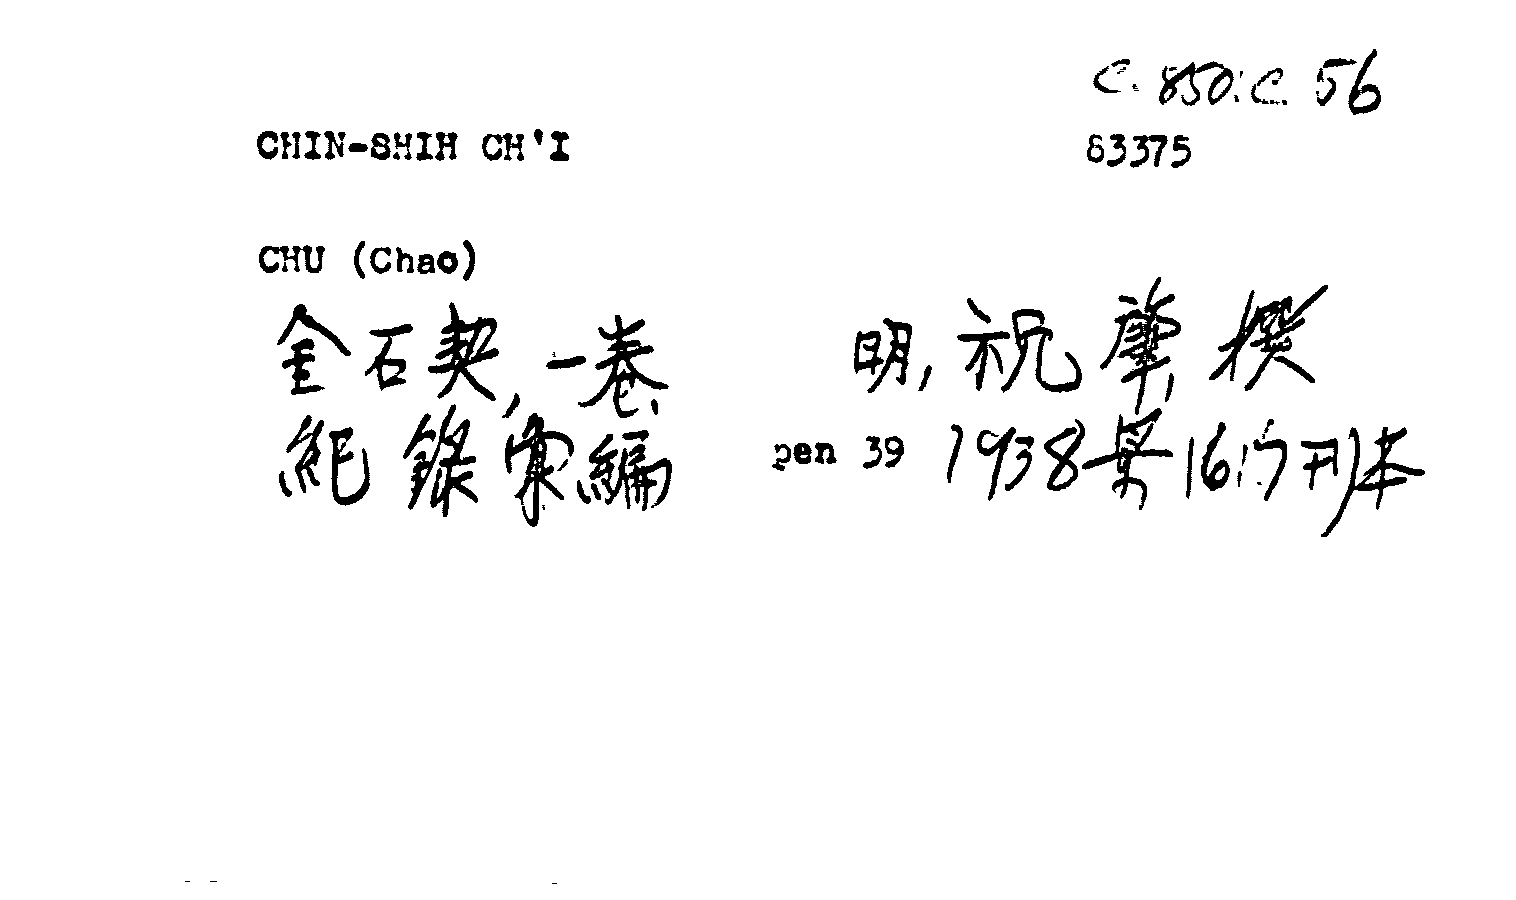 C. 850: C. 56
CHIN-SHIH CH'I 83375
CHU (Chao)
金石契, 一卷, 明, 祝肇, 撰
紀錄彙編 pen 39 1938景1617刊本